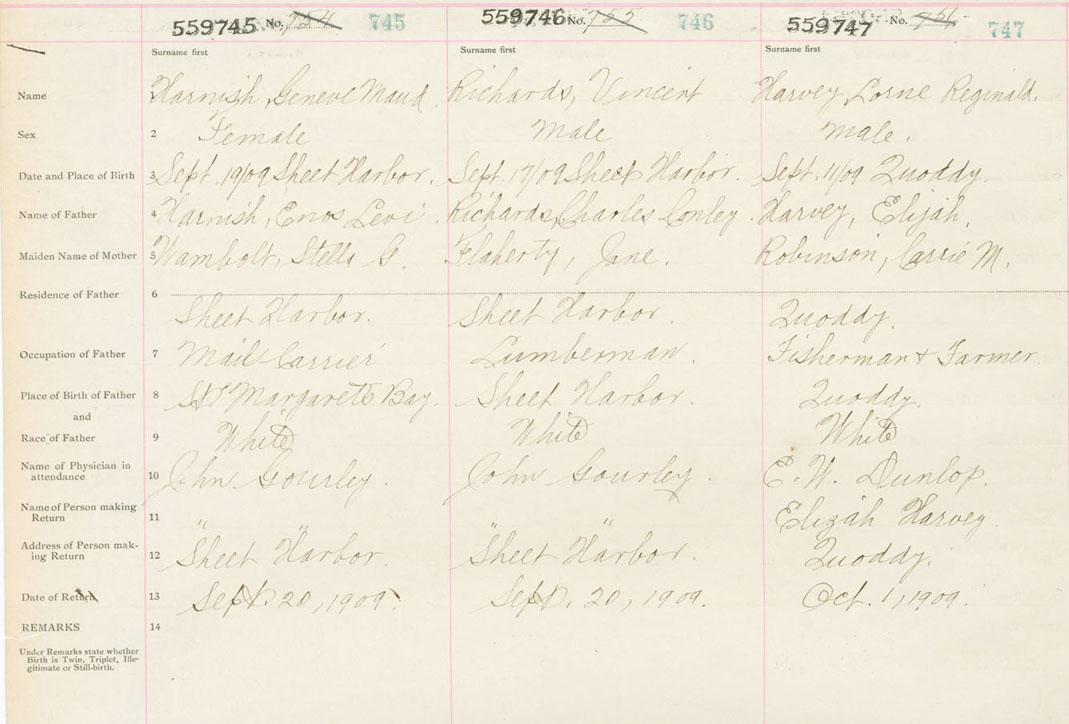 559745 No. 754 745 559746 No. 755 746 559747 No. 756 747
Surname first Surname first Surname first
Name 1 Harnish, Geneve Maud. Richards, Vincent Harvey, Lorne Reginald.
Sex 2 Female Male Male.
Date and Place of Birth 3 Sept. 19/09 Sheet Harbor. Sept. 17/09 Sheet Harbor. Sept. 11/09 Quoddy.
Name of Father 4 Harnish, Enos Levi. Richards, Charles Conley. Harvey, Elijah.
Maiden Name of Mother 5 Wambolt, Stella C. Flaherty, Jane. Robinson, Carrie M.
Residence of Father 6 Sheet Harbor. Sheet Harbor. Quoddy.
Occupation of Father 7 Mail Carrier Lumberman. Fisherman & Farmer.
Place of Birth of Father 8 St Margarets Bay. Sheet Harbor. Quoddy.
and
Race of Father 9 White White White
Name of Physician in
attendance 10 John Gourley. John Gourley. E. W. Dunlop.
Name of Person making
Return 11 " " " " Elizah Harvey.
Address of Person mak-
ing Return 12 Sheet Harbor. Sheet Harbor. Quoddy.
Date of Return 13 Sept. 20, 1909. Sept. 20, 1909. Oct. 1, 1909.
REMARKS 14
Under Remarks state whether
Birth is Twin, Triplet, Ille-
gitimate or Still-birth.